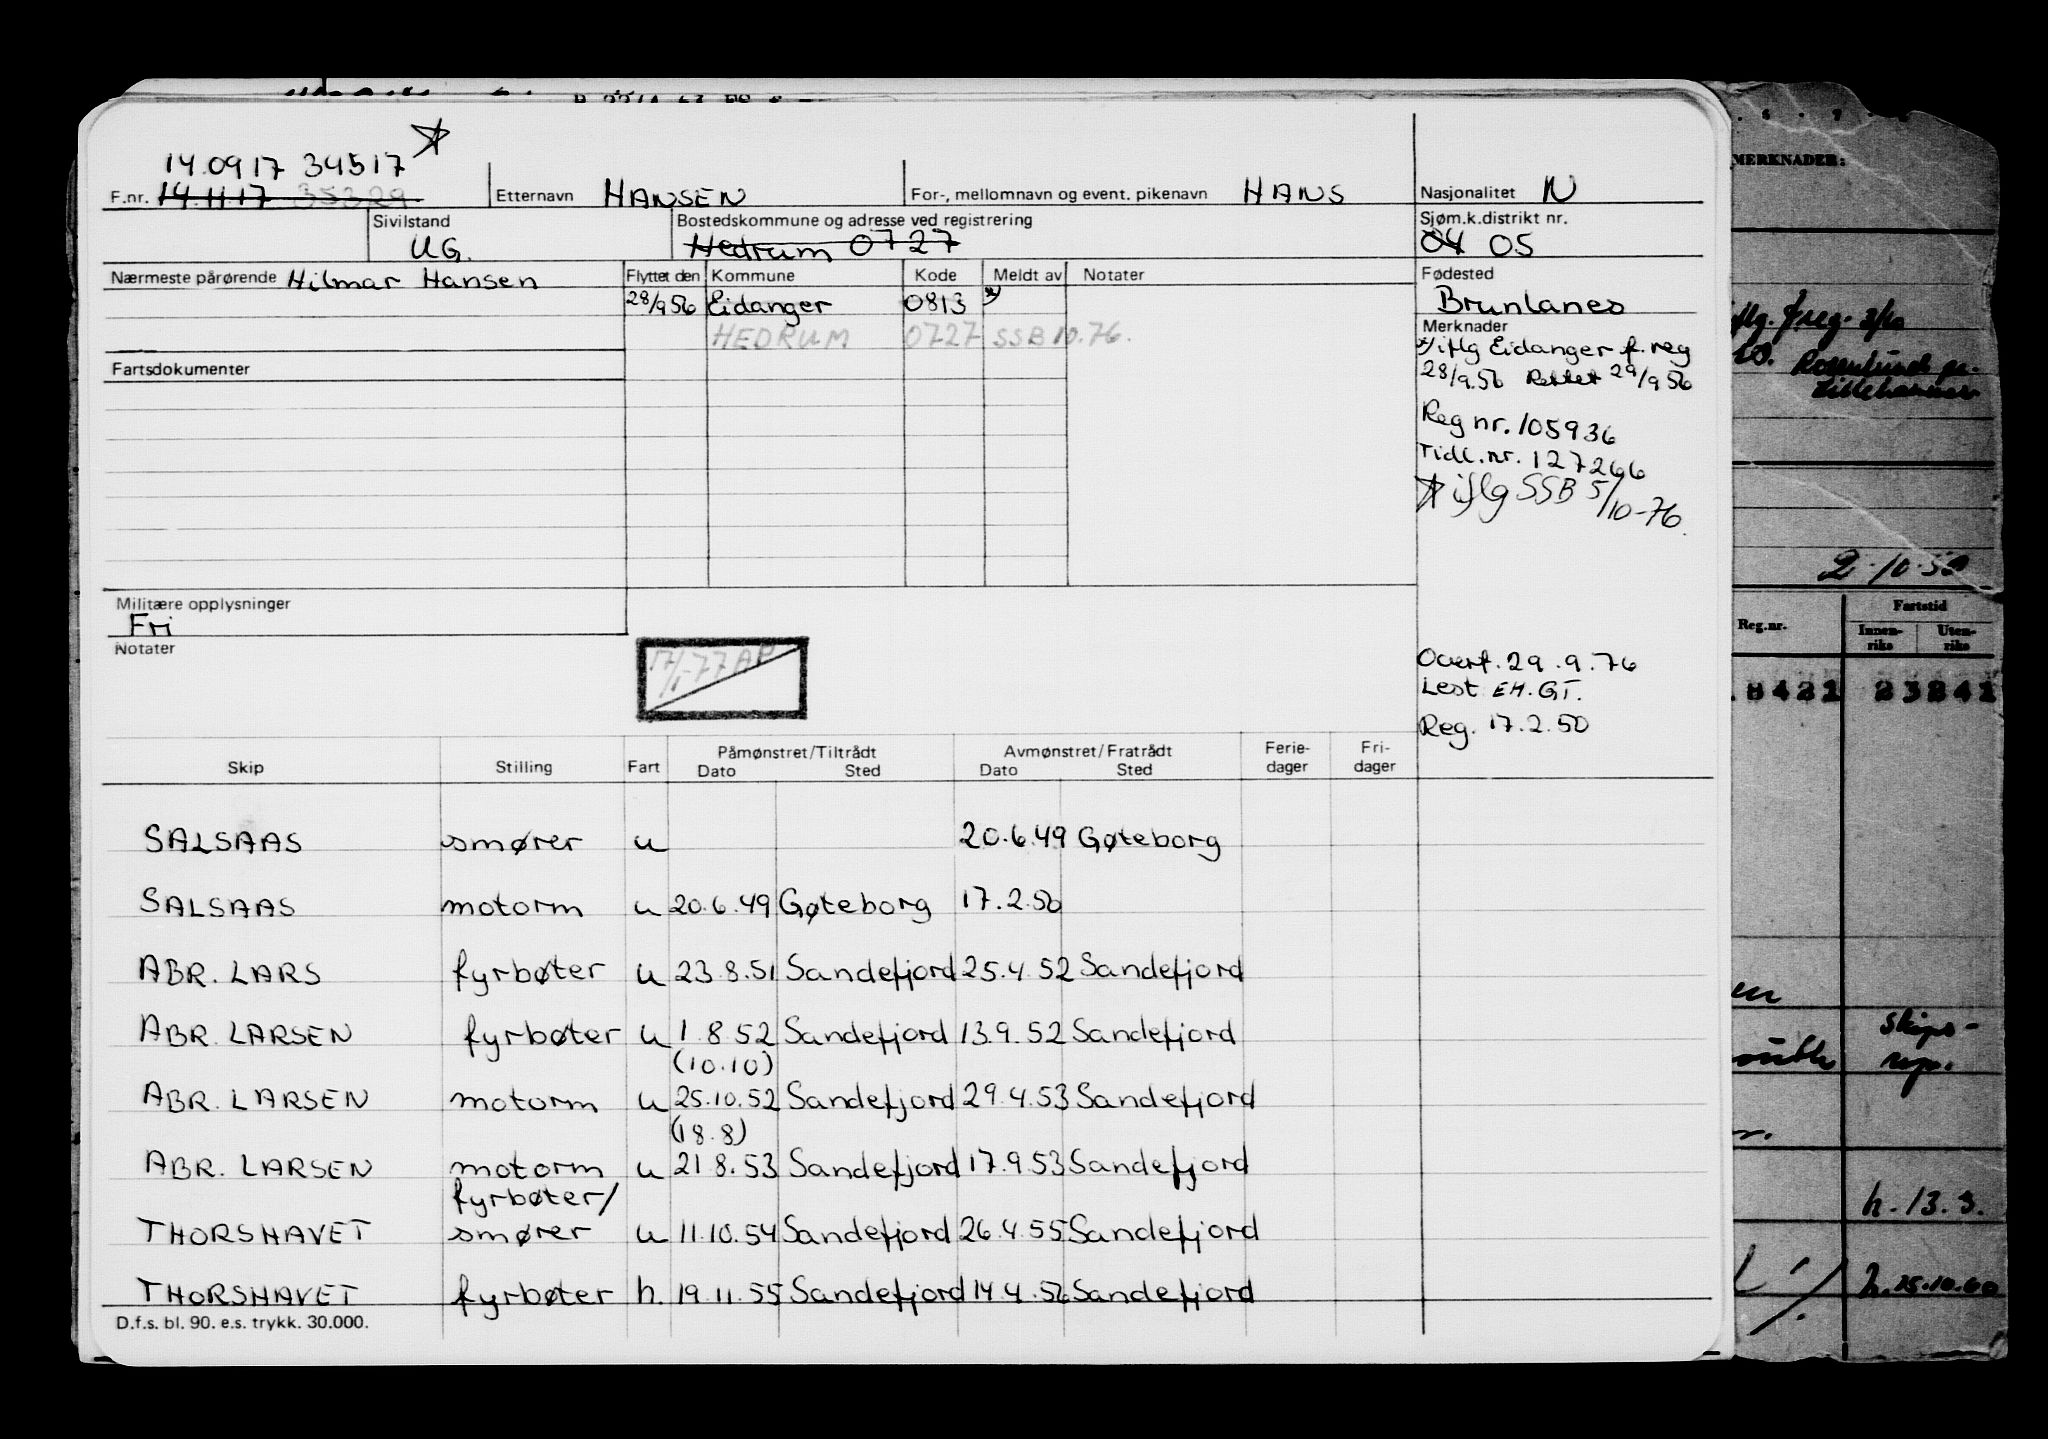 14.0917 34517
F.nr. 14.1117 35329 Etternavn HANSEN For-, mellomnavn og event. pikenavn HANS Nasjonalitet N
Sivilstand UG. Bostedskommune og adresse ved registrering Hedrum 0727 Sjøm.k.distrikt nr. 04 05
Nærmeste pårørende Hilmar Hansen Flyttet den Kommune Kode Meldt av Notater Fødested Brunlanes
28/9 56 Eidanger 0813 x)
HEDRUM 0727 SSB 10.76.
Fartsdokumenter
Merknader
x) iflg Eidanger f. reg
28/9.56 Rettet 29/9 56
Reg nr. 105936
Tidl. nr. 127266
iflg SSB 5/10-76.
Militære opplysninger
Fri
Notater
17/1-77 AP
Overf. 29.9.76
Lest EH. GT.
Reg. 17.2.50
Skip Stilling Fart Påmønstret/Tiltrådt Dato Sted Avmønstret/Fratrådt Dato Sted Ferie-dager Fri-dager
SALSAAS smører u 20.6.49 Gøteborg
SALSAAS motorm u 20.6.49 Gøteborg 17.2.50
ABR. LARS fyrbøter u 23.8.51 Sandefjord 25.4.52 Sandefjord
ABR. LARSEN fyrbøter u 1.8.52 Sandefjord 13.9.52 Sandefjord
(10.10)
ABR. LARSEN motorm u 25.10.52 Sandefjord 29.4.53 Sandefjord
(18.8)
ABR. LARSEN motorm u 21.8.53 Sandefjord 17.9.53 Sandefjord
fyrbøter/
THORSHAVET smører u 11.10.54 Sandefjord 26.4.55 Sandefjord
THORSHAVET fyrbøter h. 19.11.55 Sandefjord 14.4.56 Sandefjord
D.f.s. bl. 90. e.s. trykk. 30.000.
MERKNADER:
2.10.5
Fartstid
Reg.nr. Innen-riks Uten-riks
8421 23241
Skips-
h. 13.3.
h. 15.10.60